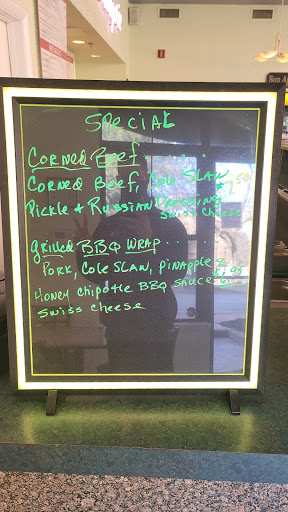 Special
Corned Beef . . . . .
Corned Beef, Cole Slaw
Pickle & Russian Dressing 7.50
Swiss Cheese
Grilled BBQ Wrap . . . .
Pork, Cole Slaw, Pinapple &
Honey Chipotle BBQ Sauce
Swiss Cheese